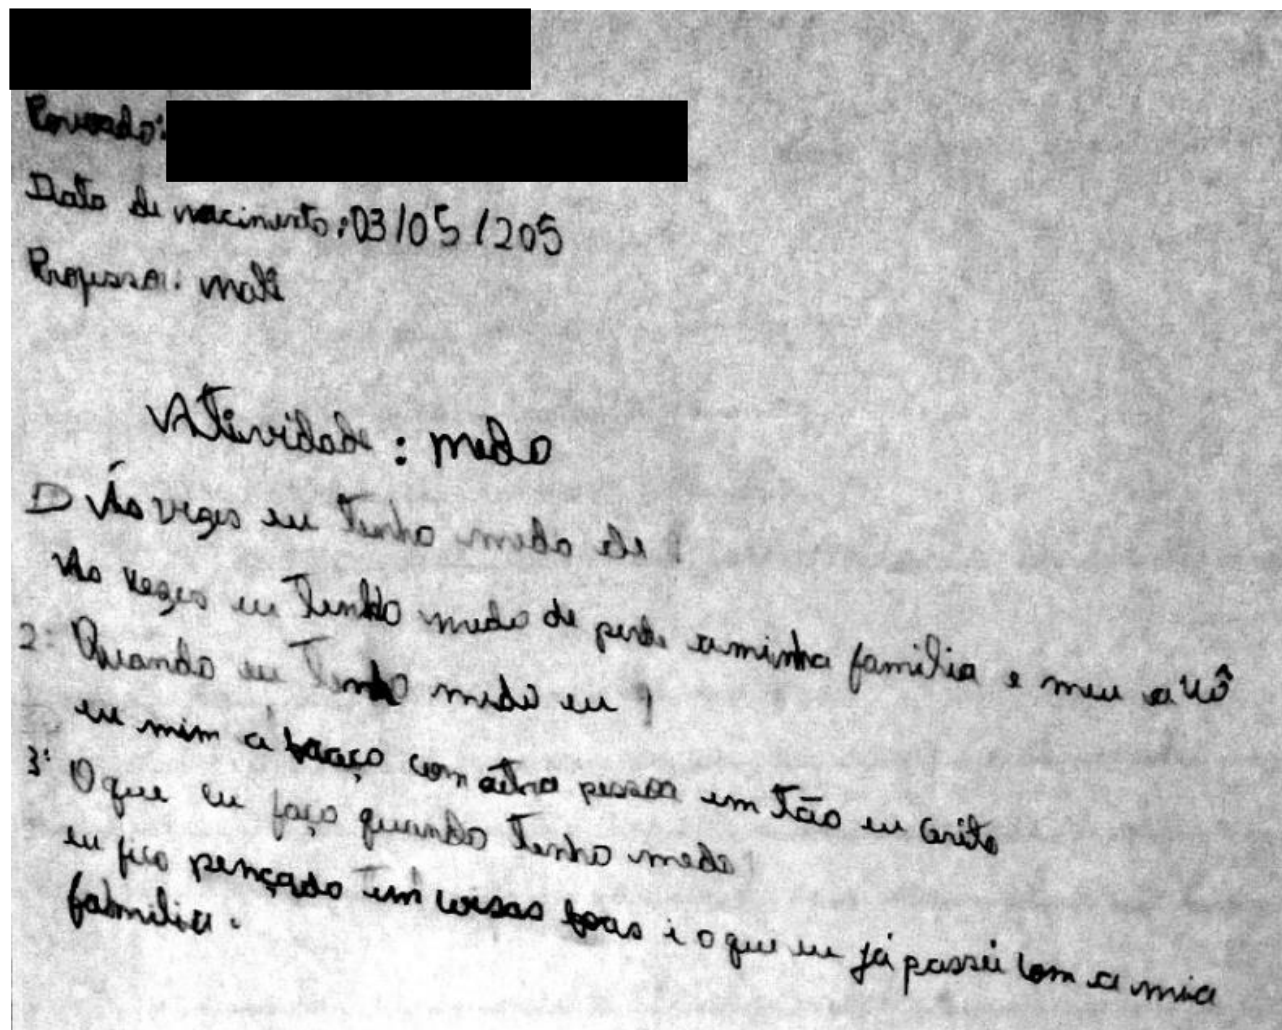 Povoado:
Data de nacimento: 03/05/205
Professora: Mali
Atividade: medo
1) Às vezes eu tenho medo de!
Às vezes eu tenho medo de perde a minha familia e meu a vô
2: Quando eu tenho medo eu!
eu mim a braço com outra pessoa em tão eu Grito
3: O que eu faço quando tenho medo!
eu fico pençado em coisas boas i o que eu já passei com a mia
familia.